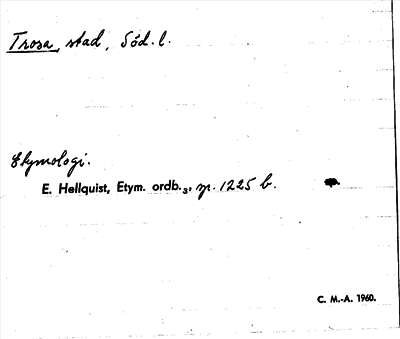 Trosa, stad, Söd. l.
Etymologi.
E. Hellquist, Etym. ordb.₃, sp. 1225 b.
C. M.-A. 1960.